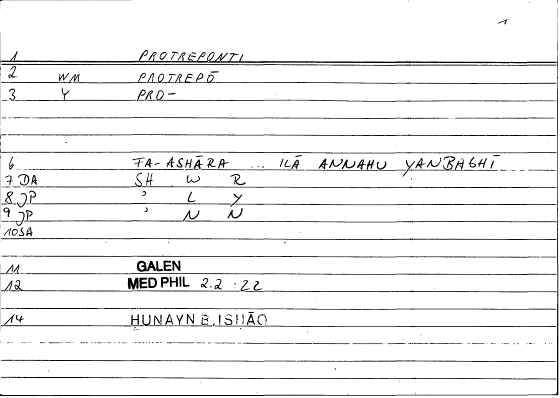 1
1 PROTREPONTI
2 WM PROTREPŌ
3 Y PRO-
6 FA-ASHĀRA ... ILĀ ANNAHU YANBAGHĪ
7 DA SH W R
8 JP ' L Y
9 JP ' N N
10 SA
11 GALEN
12 MED PHIL 2.2 : 22
14 HUNAYN B. ISHĀQ